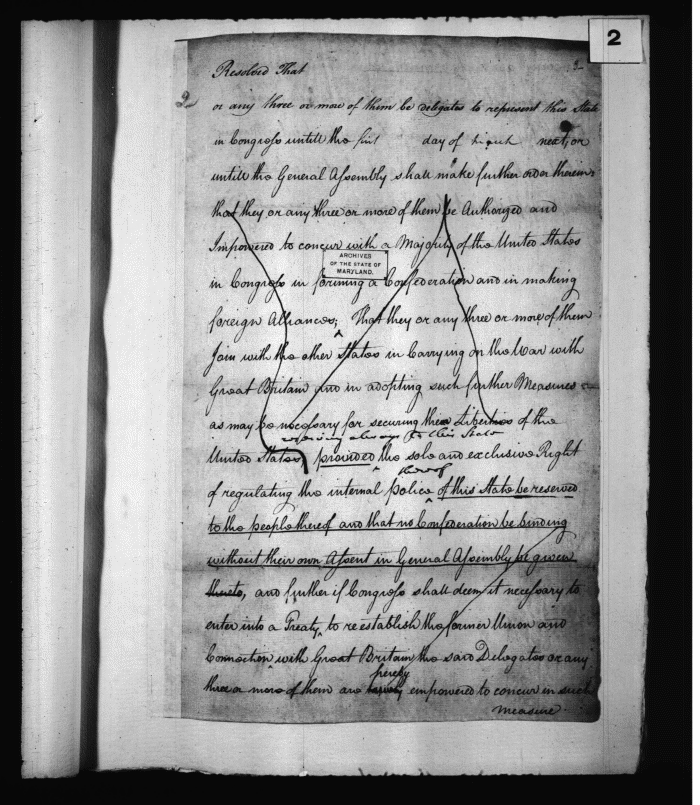 2
Resolved That
2
or any three or more of them be delegates to represent this State
in Congress untill the first day of next, or
untill the General Assembly shall make further order therein,
that they or any three or more of them be Authorized and
Impowered to concur with a Majority of the United States
ARCHIVES
OF THE STATE OF
MARYLAND.
in Congress in forming a Confederation and in making
foreign Alliances; That they or any three or more of them
Join with the other States in Carrying on the War with
Great Britain and in adopting such further Measures
as may be necessary for securing the Liberties of the
reserving always to this State
United States provided the sole and exclusive Right
thereof
of regulating the internal police of this State be reserved
to the people thereof and that no Confederation be binding
without their own Assent in General Assembly be given
thereto, and further if Congress shall deem it necessary to
enter into a Treaty, to re establish the former Union and
Connection with Great Britain the said Delegates or any
hereby
three or more of them are empowered to concur in such
measure.